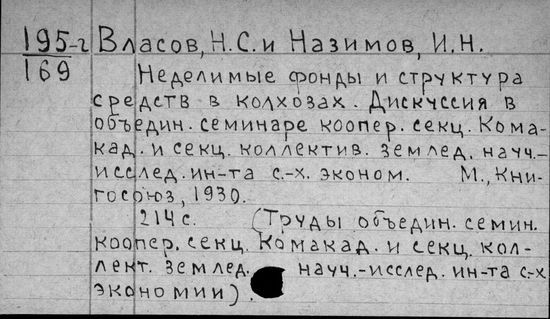 195-г Власов, Н.С. и Назимов, И.Н.
169
Неделимые фонды и структура
средств в колхозах. Дискуссия в
объедин. семинаре коопер. секц. Кома-
кад. и секц. коллектив. землед. науч.-
исслед. ин-та с.-х. эконом. М., Кни-
госоюз, 1930.
214 с. (Труды объедин. семин.
коопер. секц. Комакад. и секц. кол-
лект. землед. науч.-исслед. ин-та с.-х.
экономии).